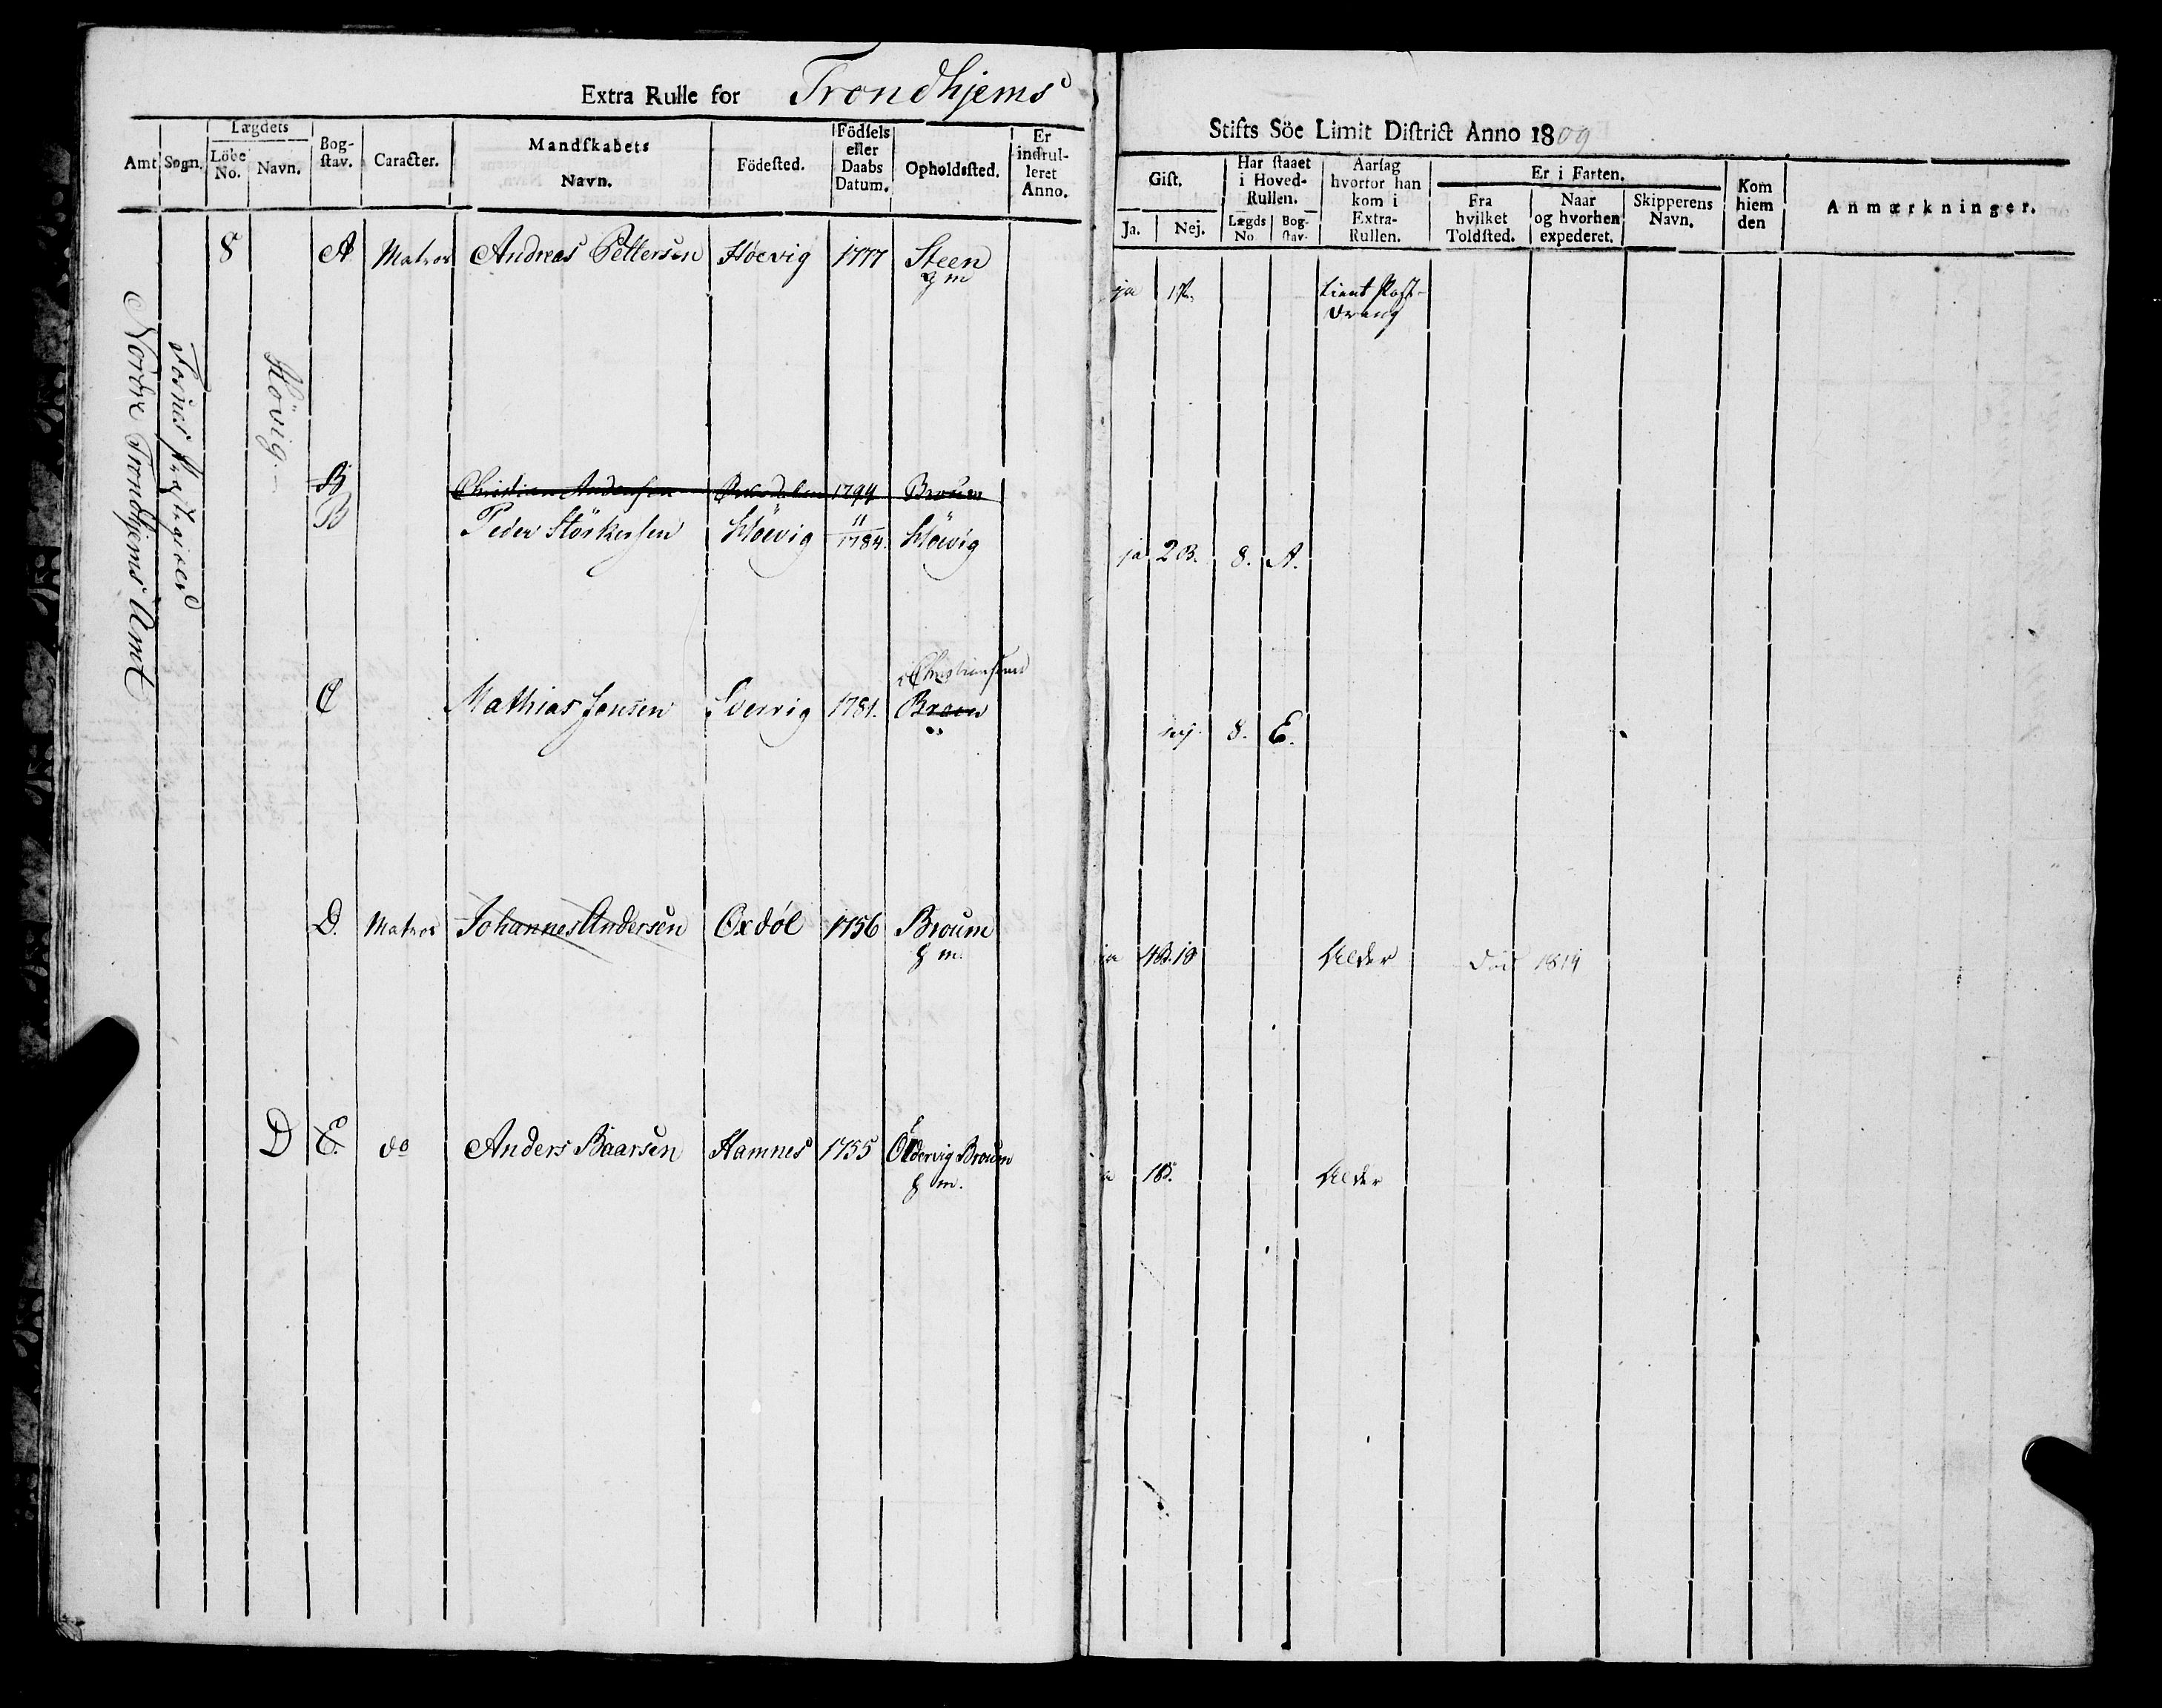 Extra Rulle for Trondhjems
Stifts Söe Limit District Anno 1809
Amt. Sogn. Lægdets Löbe No. Navn. Bog-stav. Caracter. Mandskabets Navn. Födested. Födsels eller Daabs Datum. Opholdssted. Er indrul-leret Anno.
Gift. Ja. Nej. Har staaet i Hoved-Rullen. Lægds No. Bog-stav. Aarsag hvorfor han kom i Extra-Rullen. Er i Farten. Fra hvilket Toldsted. Naar og hvorhen expederet. Skipperens Navn. Kom hiem den Anmærkninger.
Nordre Trondhjems Amt
Fosnes Præstegield
Hövig.
8 A Matros Andreas Pettersen Höevig 1777 Steen
g m
ja Lieut Post-
Dreng
B Christian Andersen 1794 Broum
B Peder Störkersen Höevig 11/1784. Höevig
ja 2 B. 8. A.
Christiansund
C Mathias Jensen 1781. Broen
nej. 8. E.
D. Matros Johannes Andersen Oxdöl 1756 Broum
g m.
ja Alder Död 1814
D E. do Anders Baarsen Hamnes 1755 Broum
g m.
Alder